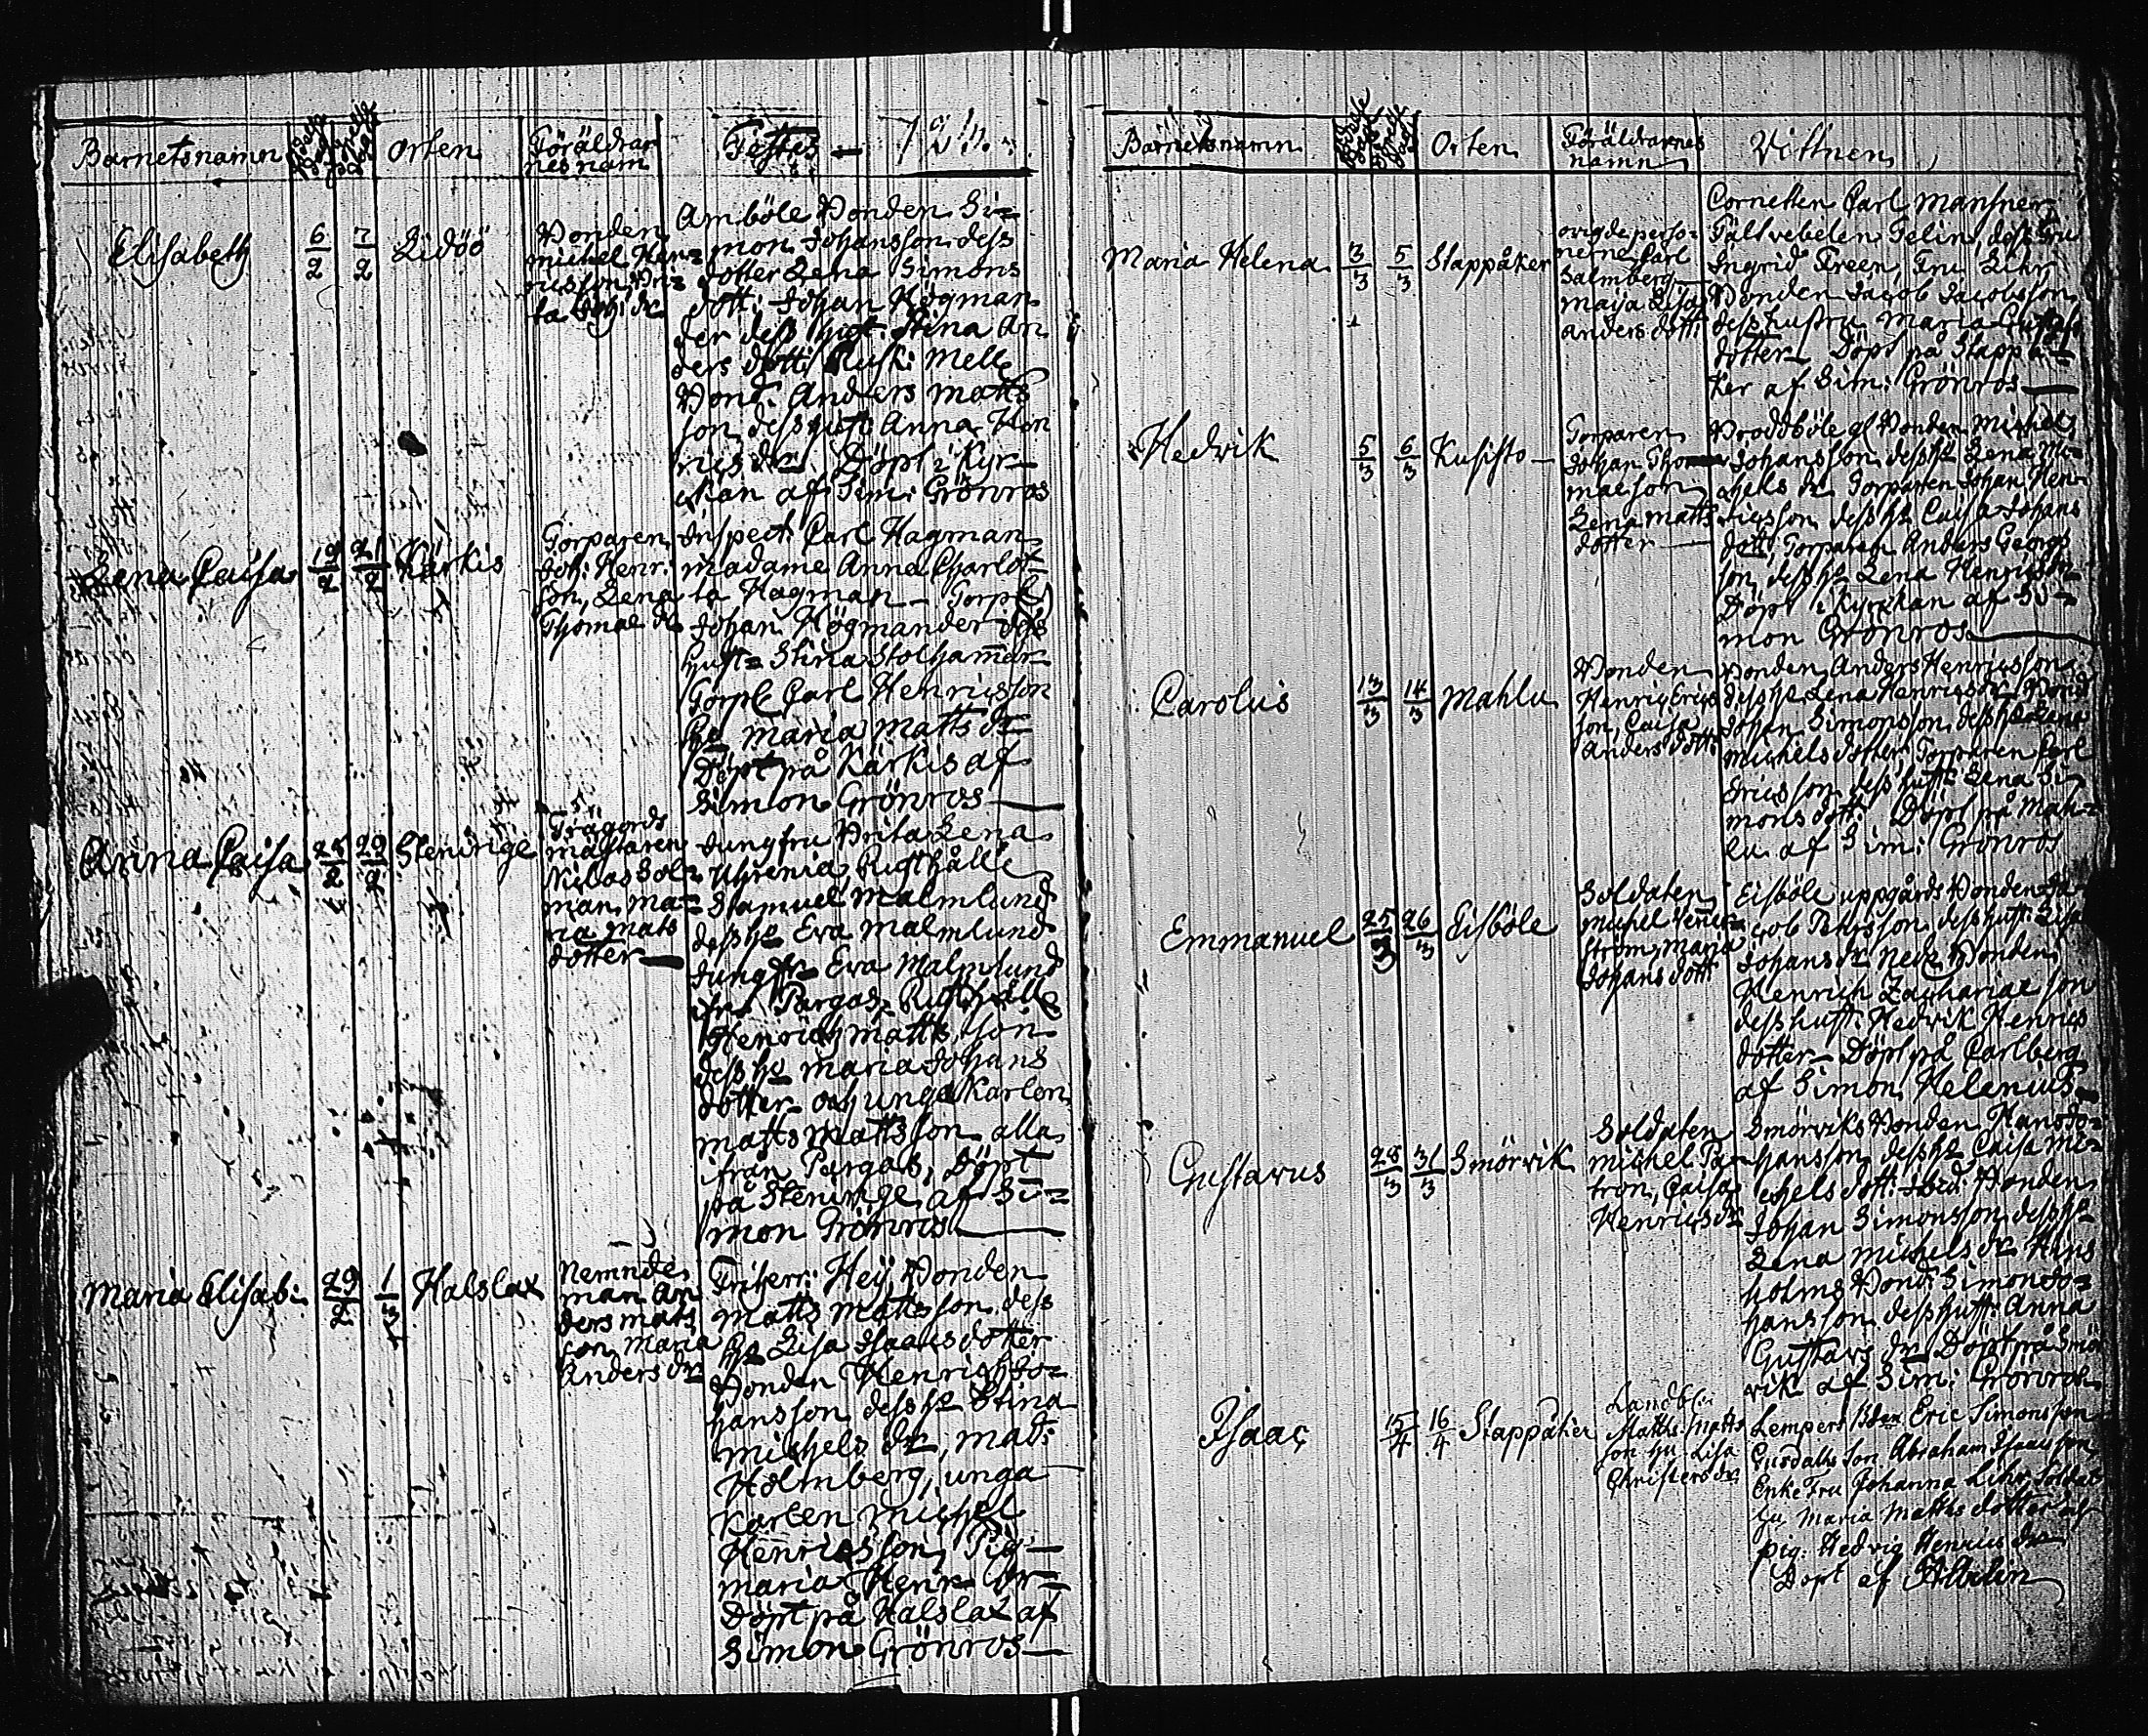 Barnetsnamn
Orten
Föräldrar
nes nam
Testes
Elisabeth
6/2 7/2
Lidöö
Bonden
Michel Hen=
ricsson, Bri=
ta Joh: dr
Amböle Bonden Si=
mon Johansson dess
dotter Lena Simons
dott: Johan Högman
der dess hust: Stina An
ders dott: Rusk: Melle
Bond: Anders Matts
son, dess hust: Anna Hen
rics dr Döpt i Kyr=
ckian af Sim: Grönros
Lena Caisa
19/2 21/2
Kärkis
Torparen
Joh: Henr:
son, Lena
Thomæ dr
Inspect: Carl Hagman
Madame Anna Charlot=
ta Hagman - Torp:
Johan Högmander dess
hust= Stina Stolhamar
Torp: Carl Henricsson
hu Maria Matts dr
Döpt på Kärkis af
Simon Grönros
Anna Caisa
28/2 29/2
Steninge
Trägords
mästaren
Niclas Sol=
man, Ma=
ria Mats
dotter
Jungfru Brita Lena
Uhrenia, Rusthålle
Samuel Malmlund
dess hu Eva Malmlund
Jungfr Eva Malmlund
ifrå Pargas, Rusthålle
Henrich Matts son
dess hu Maria Johans
dotter och unga Karlen
Matts Mattsson alla
ifrån Pargas, Döpt
på Steninge af Si=
mon Grönros
Maria Elisab:
29/2 1/3
Halslax
Nemnde
man An
ders Mats
son, Maria
Anders dr
Friherr: Heij, Bonden
Matts Mattsson, dess
hu Lisa Isaacs dotter
Bonden Henrich Jo=
hansson dess hu Stina
Michels dr, Mad:
Holmberg, unga
Karlen Michel
Henricsson, Pig
Maria Henr dr
Döpt på Halslax af
Simon Grönros
Barnetsnamn
Orten
Föräldrarnes
namn
Vittnen
Maria Helena
3/3 5/3
Stappåker
ovigde perso=
nerne Carl
Salmberg
Maija Lisa
Anders dott:
Cornetten Carl Mansner
Fältvebelen Felin, dess Fru
Ingrid Freen, Fru Lihr
Bonden Jacob Jacobsson
dess hustru Maria Gustafs
dotter Döpt på Stappå=
ker af Sim: Grönros
Hedvik
5/3 6/3
Kusisto
Torparen
Johan Tho=
mæson
Lena Matts
dotter
Broddböle Bonden Michel
Johansson dess hu Lena Mi=
chels dr Torparen Johan Hen=
ricsson dess hu Caisa Johans
dott: Torparen Anders Georgs
son, dess hu Lena Henrics
Döpt i Kyrckan af Si=
mon Grönros
Carolus
13/3 14/3
Mahlu
Bonden
Henric Erics
son, Caisa
Anders dott:
Bonden Anders Henricsson
dess hu Lena Henrics dr Bond
Johan Simonsson, dess hu Lena
Michels dotter, Torparen Carl
Ericsson dess hust: Lena Si=
mons dott: Döpt på Mah=
lu af Sim: Grönros
Emmanuel
25/3 26/3
Eisböle
Soldaten
Michel Venner
ström, Maria
Johans dott
Eisböle uppgårds Bonden Ja=
cob Pehrsson dess hust: Lisa
Johans dr Nede Bonden
Henrich Zachariæ son
dess hust: Hedvik Henrics
dotter - Döpt på Carlberg
af Simon Helenius
Gustavus
28/3 31/3
Smörvik
Soldaten
Michel Pa=
tron, Caisa
Henrics dr
Smörviks Bonden Hans Jo=
hansson, dess hu Caisa Mi=
chels dott: Bonden
Johan Simonsson dess hu
Lena Michels dr Hans
holms Bond: Simon Jo=
hansson dess hust: Anna
Gustavs dr Döpt på Smör
vik af Sim: Grönros
Isaac
15/4 16/4
Stappåker
Landb:
Matths Matts
son hu Lisa
Christers dr
Lempers Bden Eric Simonsson
Abraham Isaacsson
Enke Fru Johanna Lihr, Soldat
hu Maria Matthsdotter och
pig. Hedvig Henricsdr
Döpt af